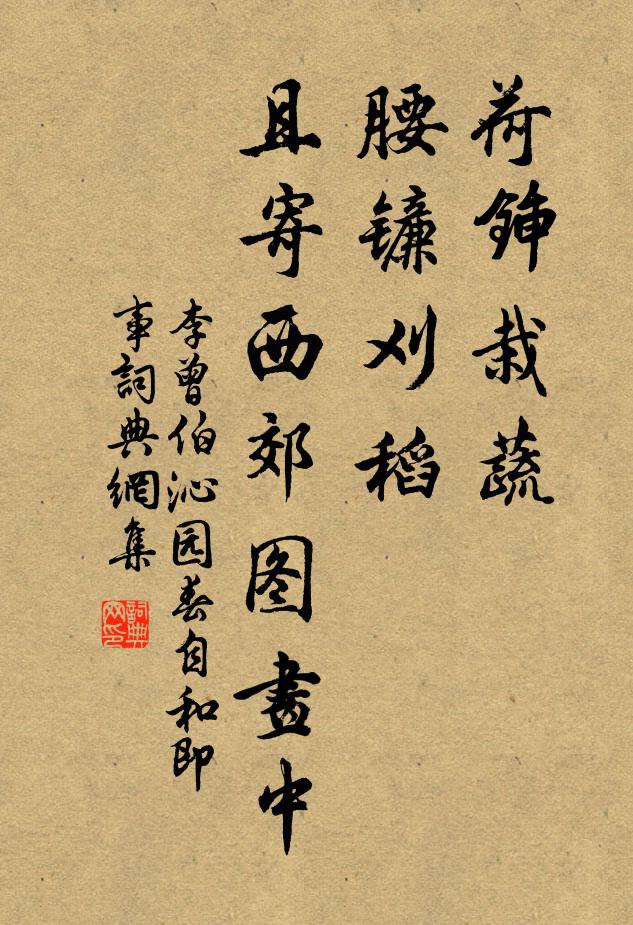 荷鍤栽蔬
腰镰刈稻
且寄西郊图畫中
李曾伯沁园春自和即
事詞典網集
詞典
网印